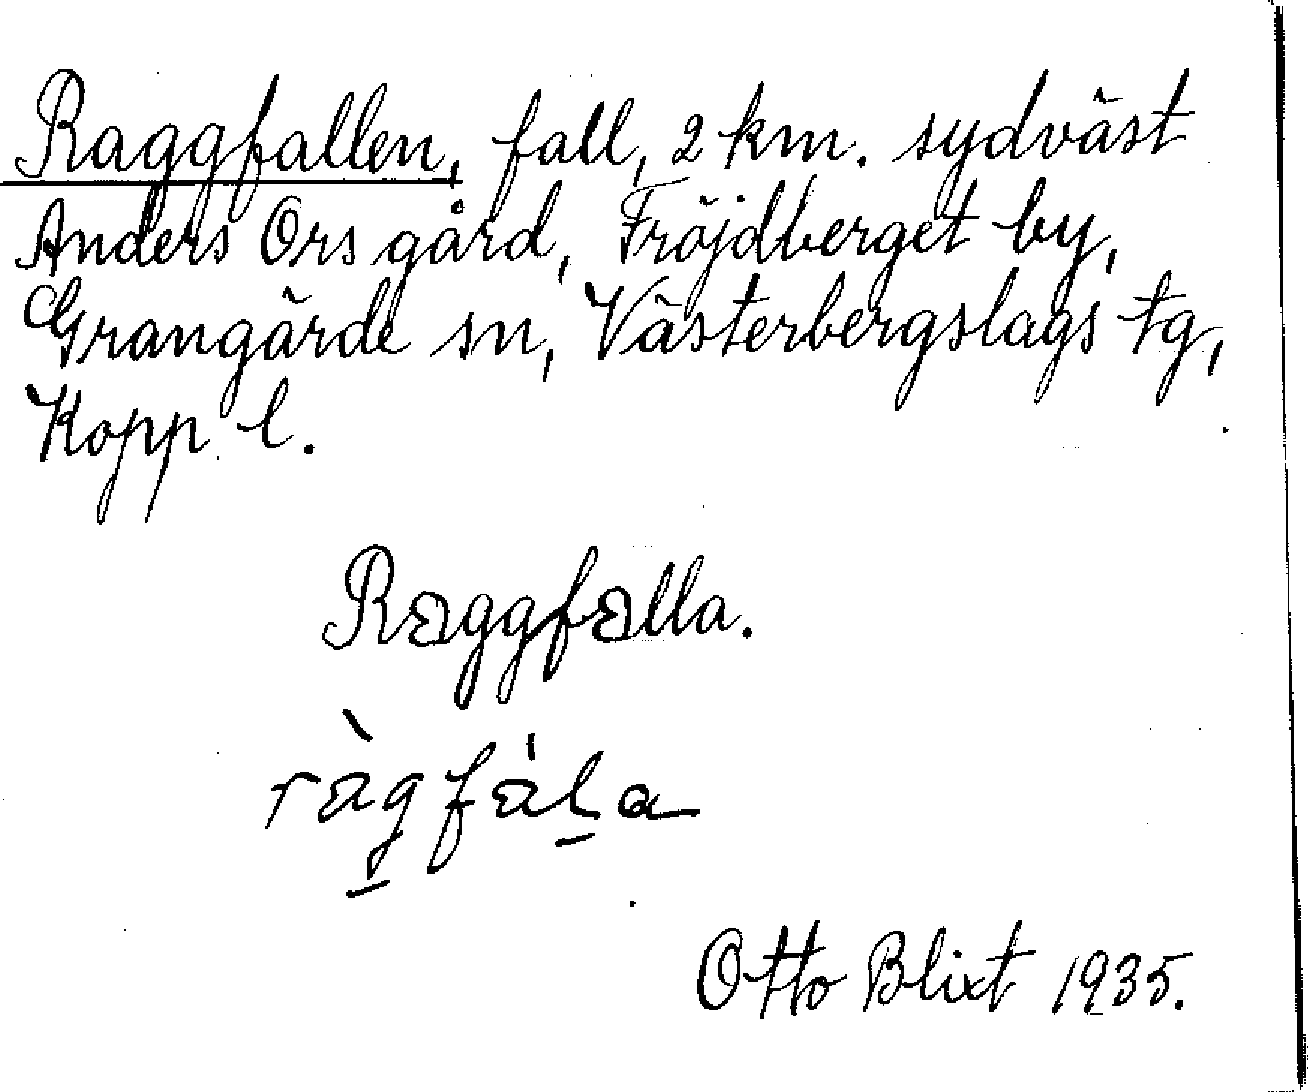 Raggfallen, fall, 2 km. sydväst
Anders Ors gård, Fröjdberget by,
Grangärde sn, Västerbergslags tg,
Kopp. l.
Raggfalla.
ràg̲fál̲a
Otto Blixt 1935.